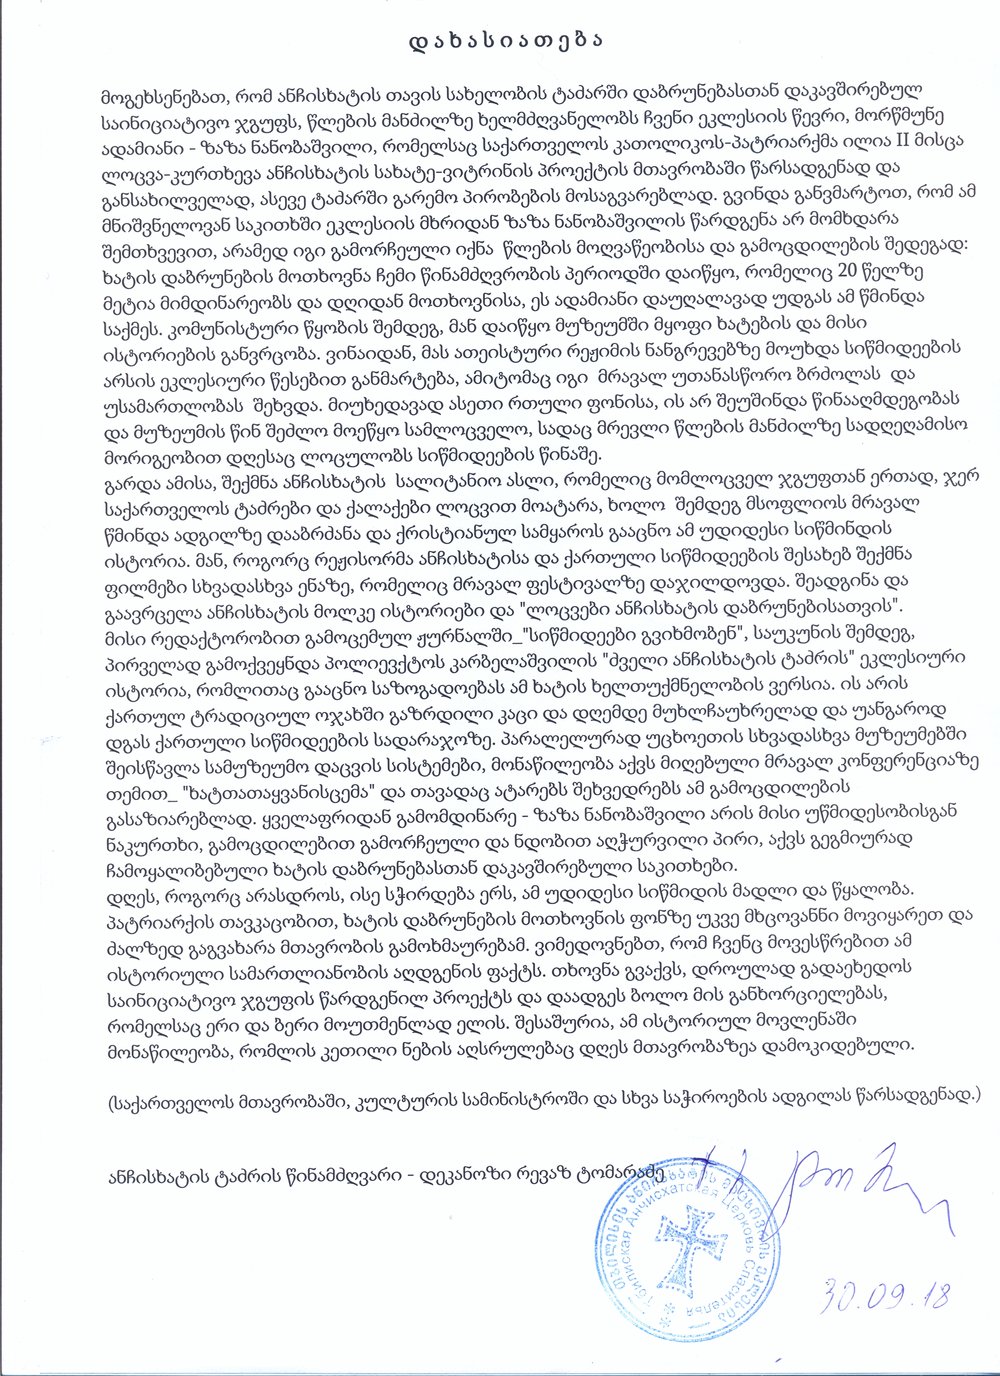 დ ა ხ ა ს ი ა თ ე ბ ა
მოგეხსენებათ, რომ ანჩისხატის თავის სახელობის ტაძარში დაბრუნებასთან დაკავშირებულ
საინიციატივო ჯგუფს, წლების მანძილზე ხელმძღვანელობს ჩვენი ეკლესიის წევრი, მორწმუნე
ადამიანი - ზაზა ნანობაშვილი, რომელსაც საქართველოს კათოლიკოს-პატრიარქმა ილია II მისცა
ლოცვა-კურთხევა ანჩისხატის სახატე-ვიტრინის პროექტის მთავრობაში წარსადგენად და
განსახილველად, ასევე ტაძარში გარემო პირობების მოსაგვარებლად. გვინდა განვმარტოთ, რომ ამ
მნიშვნელოვან საკითხში ეკლესიის მხრიდან ზაზა ნანობაშვილის წარდგენა არ მომხდარა
შემთხვევით, არამედ იგი გამორჩეული იქნა წლების მოღვაწეობისა და გამოცდილების შედეგად:
ხატის დაბრუნების მოთხოვნა ჩემი წინამძღვრობის პერიოდში დაიწყო, რომელიც 20 წელზე
მეტია მიმდინარეობს და დღიდან მოთხოვნისა, ეს ადამიანი დაუღალავად უდგას ამ წმინდა
საქმეს. კომუნისტური წყობის შემდეგ, მან დაიწყო მუზეუმში მყოფი ხატების და მისი
ისტორიების განვრცობა. ვინაიდან, მას ათეისტური რეჟიმის ნანგრევებზე მოუხდა სიწმიდეების
არსის ეკლესიური წესებით განმარტება, ამიტომაც იგი მრავალ უთანასწორო ბრძოლას და
უსამართლობას შეხვდა. მიუხედავად ასეთი რთული ფონისა, ის არ შეუშინდა წინააღმდეგობას
და მუზეუმის წინ შეძლო მოეწყო სამლოცველო, სადაც მრევლი წლების მანძილზე სადღეღამისო
მორიგეობით დღესაც ლოცულობს სიწმიდეების წინაშე.
გარდა ამისა, შექმნა ანჩისხატის სალიტანიო ასლი, რომელიც მომლოცველ ჯგუფთან ერთად, ჯერ
საქართველოს ტაძრები და ქალაქები ლოცვით მოატარა, ხოლო შემდეგ მსოფლიოს მრავალ
წმინდა ადგილზე დააბრძანა და ქრისტიანულ სამყაროს გააცნო ამ უდიდესი სიწმინდის
ისტორია. მან, როგორც რეჟისორმა ანჩისხატისა და ქართული სიწმიდეების შესახებ შექმნა
ფილმები სხვადასხვა ენაზე, რომელიც მრავალ ფესტივალზე დაჯილდოვდა. შეადგინა და
გაავრცელა ანჩისხატის მოლკე ისტორიები და "ლოცვები ანჩისხატის დაბრუნებისათვის".
მისი რედაქტორობით გამოცემულ ჟურნალში_"სიწმიდეები გვიხმობენ", საუკუნის შემდეგ,
პირველად გამოქვეყნდა პოლიევქტოს კარბელაშვილის "ძველი ანჩისხატის ტაძრის" ეკლესიური
ისტორია, რომლითაც გააცნო საზოგადოებას ამ ხატის ხელთუქმნელობის ვერსია. ის არის
ქართულ ტრადიციულ ოჯახში გაზრდილი კაცი და დღემდე მუხლჩაუხრელად და უანგაროდ
დგას ქართული სიწმიდეების სადარაჯოზე. პარალელურად უცხოეთის სხვადასხვა მუზეუმებში
შეისწავლა სამუზეუმო დაცვის სისტემები, მონაწილეობა აქვს მიღებული მრავალ კონფერენციაზე
თემით_ "ხატთათაყვანისცემა" და თავადაც ატარებს შეხვედრებს ამ გამოცდილების
გასაზიარებლად. ყველაფრიდან გამომდინარე - ზაზა ნანობაშვილი არის მისი უწმიდესობისგან
ნაკურთხი, გამოცდილებით გამორჩეული და ნდობით აღჭურვილი პირი, აქვს გეგმიურად
ჩამოყალიბებული ხატის დაბრუნებასთან დაკავშირებული საკითხები.
დღეს, როგორც არასდროს, ისე სჭირდება ერს, ამ უდიდესი სიწმიდის მადლი და წყალობა.
პატრიარქის თავკაცობით, ხატის დაბრუნების მოთხოვნის ფონზე უკვე მხცოვანნი მოვიყარეთ და
ძალზედ გაგვახარა მთავრობის გამოხმაურებამ. ვიმედოვნებთ, რომ ჩვენც მოვესწრებით ამ
ისტორიული სამართლიანობის აღდგენის ფაქტს. თხოვნა გვაქვს, დროულად გადაეხედოს
საინიციატივო ჯგუფის წარდგენილ პროექტს და დაადგეს ბოლო მის განხორციელებას,
რომელსაც ერი და ბერი მოუთმენლად ელის. შესაშურია, ამ ისტორიულ მოვლენაში
მონაწილეობა, რომლის კეთილი ნების აღსრულებაც დღეს მთავრობაზეა დამოკიდებული.
(საქართველოს მთავრობაში, კულტურის სამინისტროში და სხვა საჭიროების ადგილას წარსადგენად.)
ანჩისხატის ტაძრის წინამძღვარი - დეკანოზი რევაზ ტომარაძე
თბილისის ანჩისხატის მაცხოვრის ეკლესია
Тбилисская Анчисхатская Церковь Спасителья
30.09.18